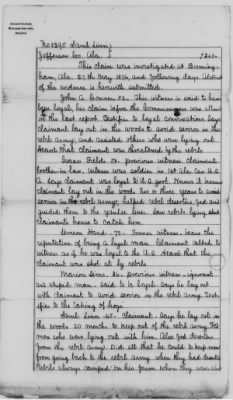 No 1390 Saml Linn }
Jefferson Co. Ala. } $240.
This claim was investigated at Birming-
ham, Ala. 27th May 1876, and following days. Abstract
of the evidence is herewith submitted.
John A. 52. This witness is said to have
been loyal, his claim before the Commissioners was allowed
in the last report. Testifies to loyal conversations. Says
claimant lay out in the woods to avoid service in the
rebel army, and assisted others who were lying out.
Heard that claimant was threatened by the rebels.
Isaac Fields 52. previous witness. Claimant
brother in law. Witness was soldier in 1st Ala. Cav. U.S.
A. Says claimant was loyal to U.S. Govt. Knows &
claimant lay out in the woods two or three years to avoid
service in the rebel army; helped rebel deserters, fed and
guided them to the Yankee lines. Saw rebels lying about
claimants house to catch him.
Hood - 70. Former witness; bears the
reputation of being a loyal man. Claimant talked to
witness as if he was loyal to the U.S. Heard that the
claimant was shot at by rebels.
Marion Sims. 52. previous witness - ignorant
man - said to be loyal. Say he lay out
with claimant to avoid service in the rebel army. Test-
ifies to the taking of horse.
Saml Linn 50. claimant. Say he lay out in
the woods 20 months to keep out of the rebel army. Fed
men who were lying out with him. Also fed deserters
from the rebel army. Did all that he could to keep men
from going back to the rebel army when they had deserted.
Rebels always camped on his farm when they were in